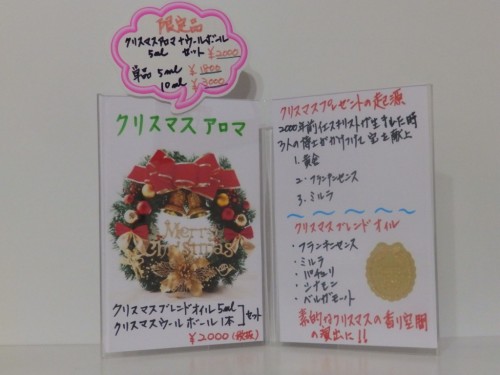 限定品
クリスマスアロマ+ウールボール
5ml セット ¥2000
単品 5ml ¥1800
10ml ¥3000
クリスマス アロマ
Merry
Christmas
クリスマスブレンドオイル 5ml
クリスマスウールボール 1本 ]セット
¥2000(税抜)
クリスマスプレゼントの起源
2000年前イエスキリストが生まれた時
3人の博士がかけつけて宝を献上
1. 黄金
2. フランキンセンス
3. ミルラ
クリスマスブレンドオイル
・フランキンセンス
・ミルラ
・パチュリ
・シナモン
・ベルガモット
素的なクリスマスの香り空間
の演出に!!